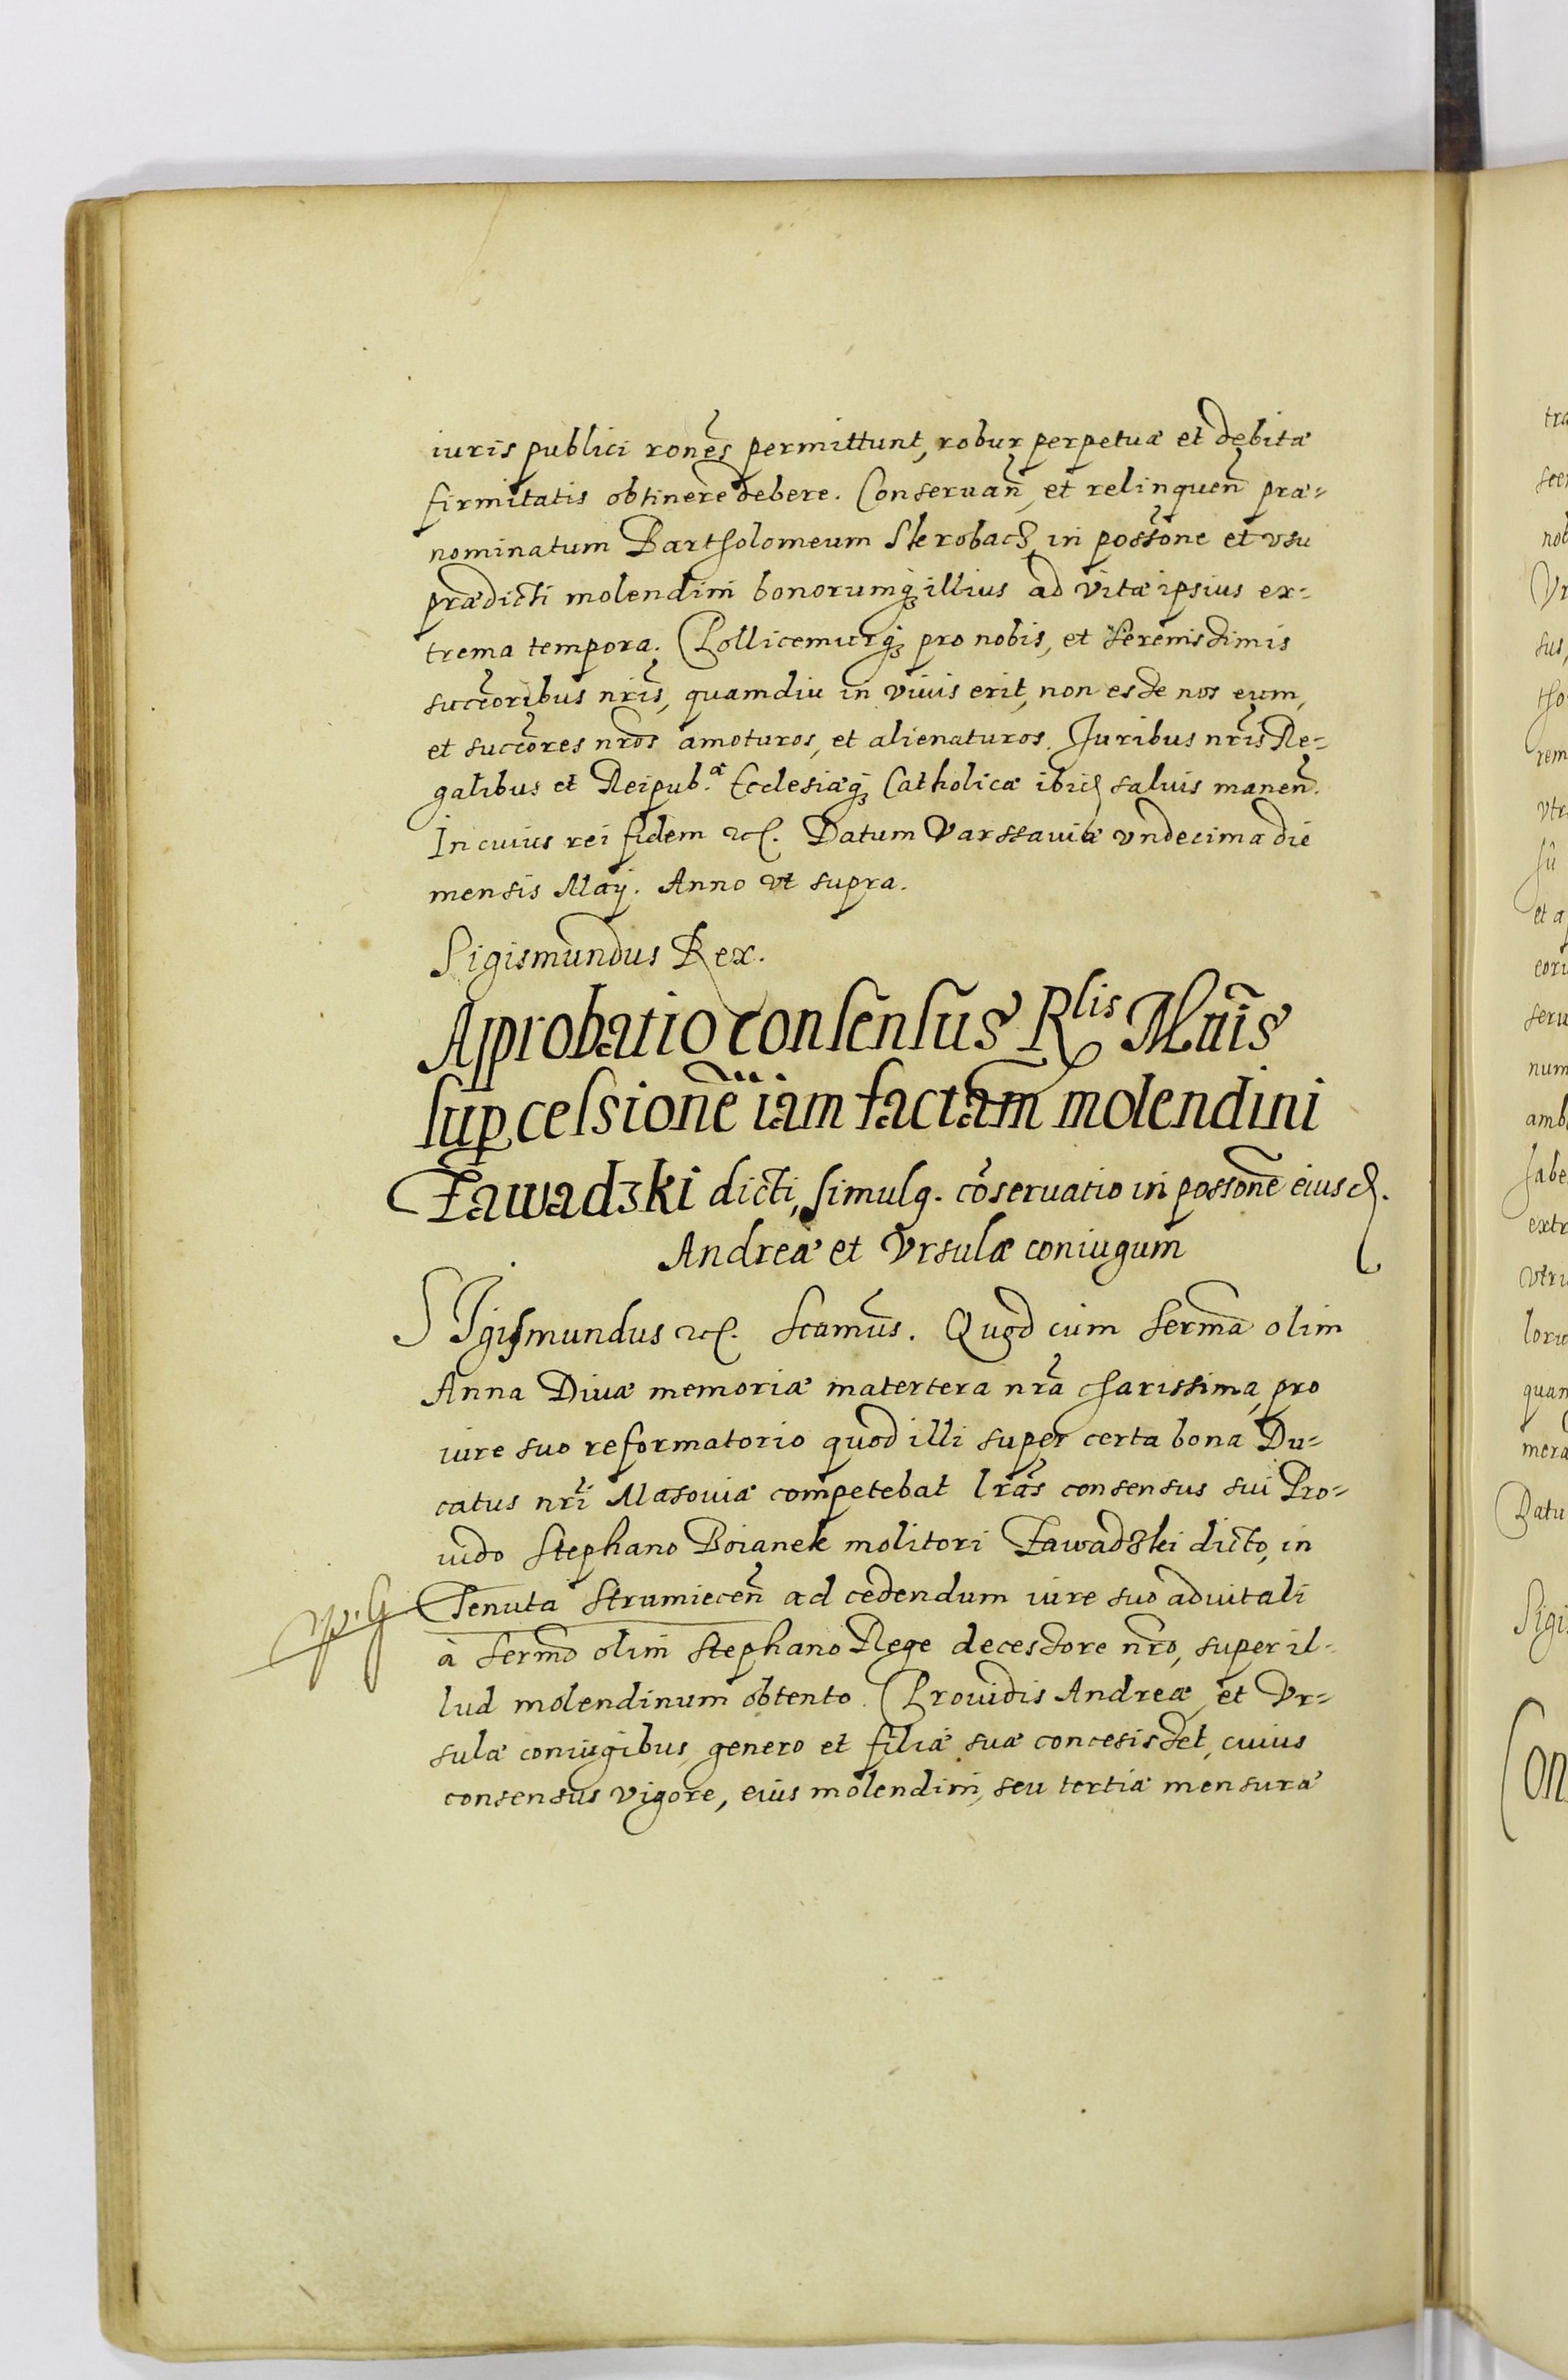 iuris publici rones permittunt, robur perpetuæ et debitæ
firmitatis obtinere debere. Conseruan, et relinquen præ=
nominatum Bartholomeum Skrobach, in possone et vsu
prædicti molendini bonorumq illius ad vitæ ipsius ex=
trema tempora. Pollicemurq pro nobis, et Serenissimis
succoribus nris, quamdiu in viuis erit, non esse nos eum,
et succores nros amoturos, et alienaturos. Juribus nris Re=
galibus et Reipub.æ Ecclesiæq Catholicæ ibid saluis manen.
In cuius rei fidem etc. Datum Varssauiæ vndecima die
mensis Maij. Anno vt supra.
Sigismundus Rex.
Approbatio consensus Rlis Mtis
sup cessionē iam factam molendini
Zawadzki dicti, simulq. cōseruatio in possonē eiusd.
Andreæ et Vrsulæ coniugum
SIgismundus etc. Scamus. Quod cum Serma olim
Anna Diuæ memoriæ matertera nra charissima, pro
iure suo reformatorio quod illi super certa bona Du=
catus nri Masouiæ competebat lras consensus sui Pro=
uido Stephano Boianek molitori Zawadzki dicto, in
Tenuta Strumiecen ad cedendum iure suo aduitali
à Sermo olim Stephano Rege decessore nro, super il=
lud molendinum obtento. Prouidis Andreæ, et Vr=
sulæ coniugibus, genero et filiæ suæ concesisset, cuius
consensus vigore, eius molendini, seu tertiæ mensuræ